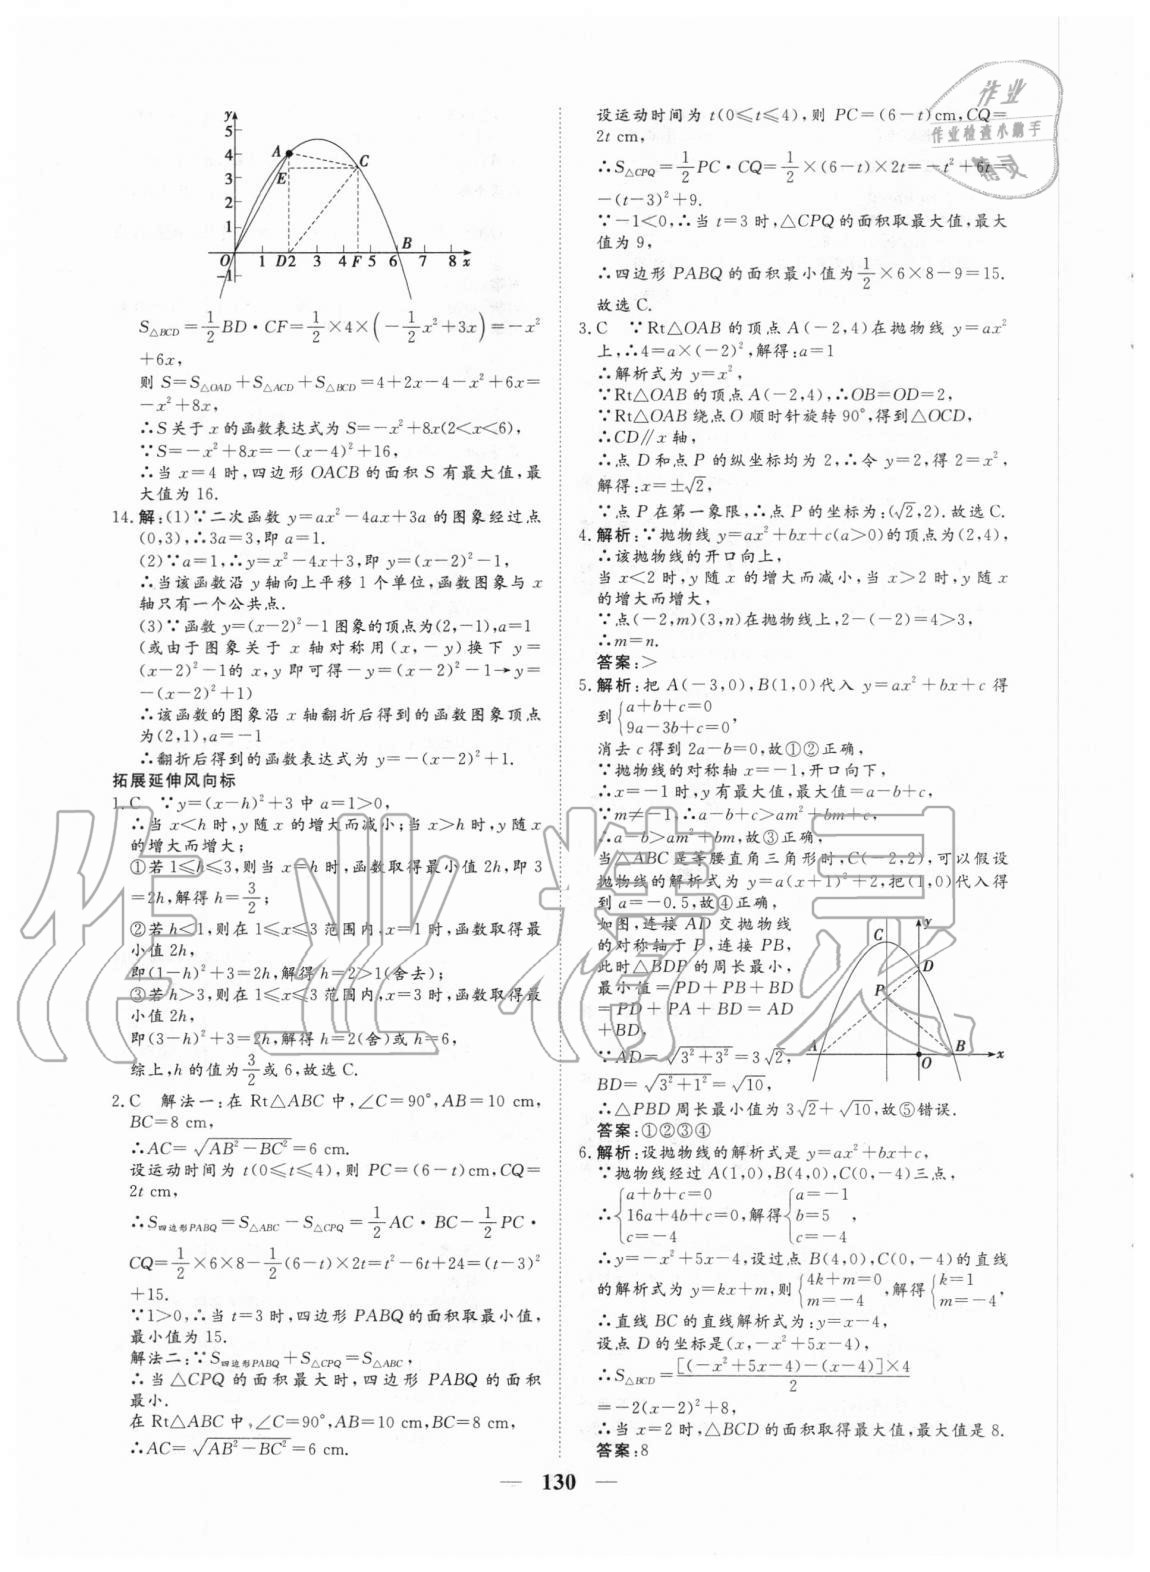 y
5
4
3
2
1
-1
O
A
E
C
B
1 D2 3 4 F 5 6 7 8 x
S△BCD=1/2BD·CF=1/2×4×(-1/2x²+3x)=-x²
+6x,
则 S=S△OAD+S△ACD+S△BCD=4+2x-4-x²+6x=
-x²+8x,
∴S关于 x 的函数表达式为 S=-x²+8x(2<x<6),
∵S=-x²+8x=-(x-4)²+16,
∴当 x=4 时,四边形 OACB 的面积 S 有最大值,最
大值为 16.
14.解:(1)∵二次函数 y=ax²-4ax+3a 的图象经过点
(0,3),∴3a=3,即 a=1.
(2)∵a=1,∴y=x²-4x+3,即 y=(x-2)²-1,
∴当该函数沿 y 轴向上平移 1 个单位,函数图象与 x
轴只有一个公共点.
(3)∵函数 y=(x-2)²-1图象的顶点为(2,-1),a=1
(或由于图象关于 x 轴对称用(x,-y)换下 y=
(x-2)²-1的 x,y 即可得-y=(x-2)²-1→y=
-(x-2)²+1)
∴该函数的图象沿 x 轴翻折后得到的函数图象顶点
为(2,1),a=-1
∴翻折后得到的函数表达式为 y=-(x-2)²+1.
拓展延伸风向标
1.C ∵y=(x-h)²+3 中 a=1>0,
∴当 x<h 时,y 随 x 的增大而减小;当 x>h 时,y 随 x
的增大而增大;
①若 1≤h≤3,则当 x=h 时,函数取得最小值 2h,即 3
=2h,解得 h=3/2;
②若 h<1,则在 1≤x≤3 范围内,x=1 时,函数取得最
小值 2h,
即(1-h)²+3=2h,解得 h=2>1(舍去);
③若 h>3,则在 1≤x≤3 范围内,x=3 时,函数取得最
小值 2h,
即(3-h)²+3=2h,解得 h=2(舍)或 h=6,
综上,h 的值为 3/2 或 6,故选 C.
2.C 解法一:在 Rt△ABC 中,∠C=90°,AB=10 cm,
BC=8 cm,
∴AC=√(AB²-BC²)=6 cm.
设运动时间为 t(0≤t≤4),则 PC=(6-t)cm,CQ=
2t cm,
∴S四边形PABQ=S△ABC-S△CPQ=1/2AC·BC-1/2PC·
CQ=1/2×6×8-1/2(6-t)×2t=t²-6t+24=(t-3)²
+15.
∵1>0,∴当 t=3 时,四边形 PABQ 的面积取最小值,
最小值为 15.
解法二:∵S四边形PABQ+S△CPQ=S△ABC,
∴当△CPQ 的面积最大时,四边形 PABQ 的面积
最小.
在 Rt△ABC 中,∠C=90°,AB=10 cm,BC=8 cm,
∴AC=√(AB²-BC²)=6 cm.
设运动时间为 t(0≤t≤4),则 PC=(6-t)cm,CQ=
2t cm,
∴S△CPQ=1/2PC·CQ=1/2×(6-t)×2t=-t²+6t=
-(t-3)²+9.
∵-1<0,∴当 t=3 时,△CPQ 的面积取最大值,最大
值为 9,
∴四边形 PABQ 的面积最小值为1/2×6×8-9=15.
故选 C.
3.C ∵Rt△OAB 的顶点 A(-2,4)在抛物线 y=ax²
上,∴4=a×(-2)²,解得:a=1
∴解析式为 y=x²,
∵Rt△OAB 的顶点 A(-2,4),∴OB=OD=2,
∵Rt△OAB 绕点 O 顺时针旋转 90°,得到△OCD,
∴CD∥x 轴,
∴点 D 和点 P 的纵坐标均为 2,∴令 y=2,得 2=x²,
解得:x=±√2,
∵点 P 在第一象限,∴点 P 的坐标为:(√2,2).故选 C.
4.解析:∵抛物线 y=ax²+bx+c(a>0)的顶点为(2,4),
∴该抛物线的开口向上,
当 x<2 时,y 随 x 的增大而减小,当 x>2 时,y 随 x
的增大而增大,
∵点(-2,m)(3,n)在抛物线上,2-(-2)=4>3,
∴m=n.
答案:>
5.解析:把 A(-3,0),B(1,0)代入 y=ax²+bx+c 得
到{a+b+c=0
9a-3b+c=0,
消去 c 得到 2a-b=0,故①②正确,
∵抛物线的对称轴 x=-1,开口向下,
∴x=-1 时,y 有最大值,最大值=a-b+c,
∵m≠-1,∴a-b+c>am²+bm+c,
∴a-b>am²+bm,故③正确,
当△ABC 是等腰直角三角形时,C(-2,2),可以假设
抛物线的解析式为 y=a(x+1)²+2,把(1,0)代入得
到 a=-0.5,故④正确,
如图,连接 AD 交抛物线
的对称轴于 P,连接 PB,
此时△BDP 的周长最小,
最小值=PD+PB+BD
=PD+PA+BD=AD
+BD,
∵AD=√(3²+3²)=3√2,
BD=√(3²+1²)=√10,
y
C
D
P
A
O
B
x
∴△PBD 周长最小值为 3√2+√10,故⑤错误.
答案:①②③④
6.解析:设抛物线的解析式是 y=ax²+bx+c,
∵抛物线经过 A(1,0),B(4,0),C(0,-4)三点,
∴{a+b+c=0
16a+4b+c=0,解得{a=-1
b=5,
c=-4
c=-4
∴y=-x²+5x-4,设过点 B(4,0),C(0,-4)的直线
的解析式为 y=kx+m,则{4k+m=0
m=-4,解得{k=1
m=-4,
∴直线 BC 的直线解析式为:y=x-4,
设点 D 的坐标是(x,-x²+5x-4),
∴S△BCD=[(-x²+5x-4)-(x-4)]×4/2
=-2(x-2)²+8,
∴当 x=2 时,△BCD 的面积取得最大值,最大值是 8.
答案:8
— 130 —
作业
作业检查小助手
精灵
作业精灵